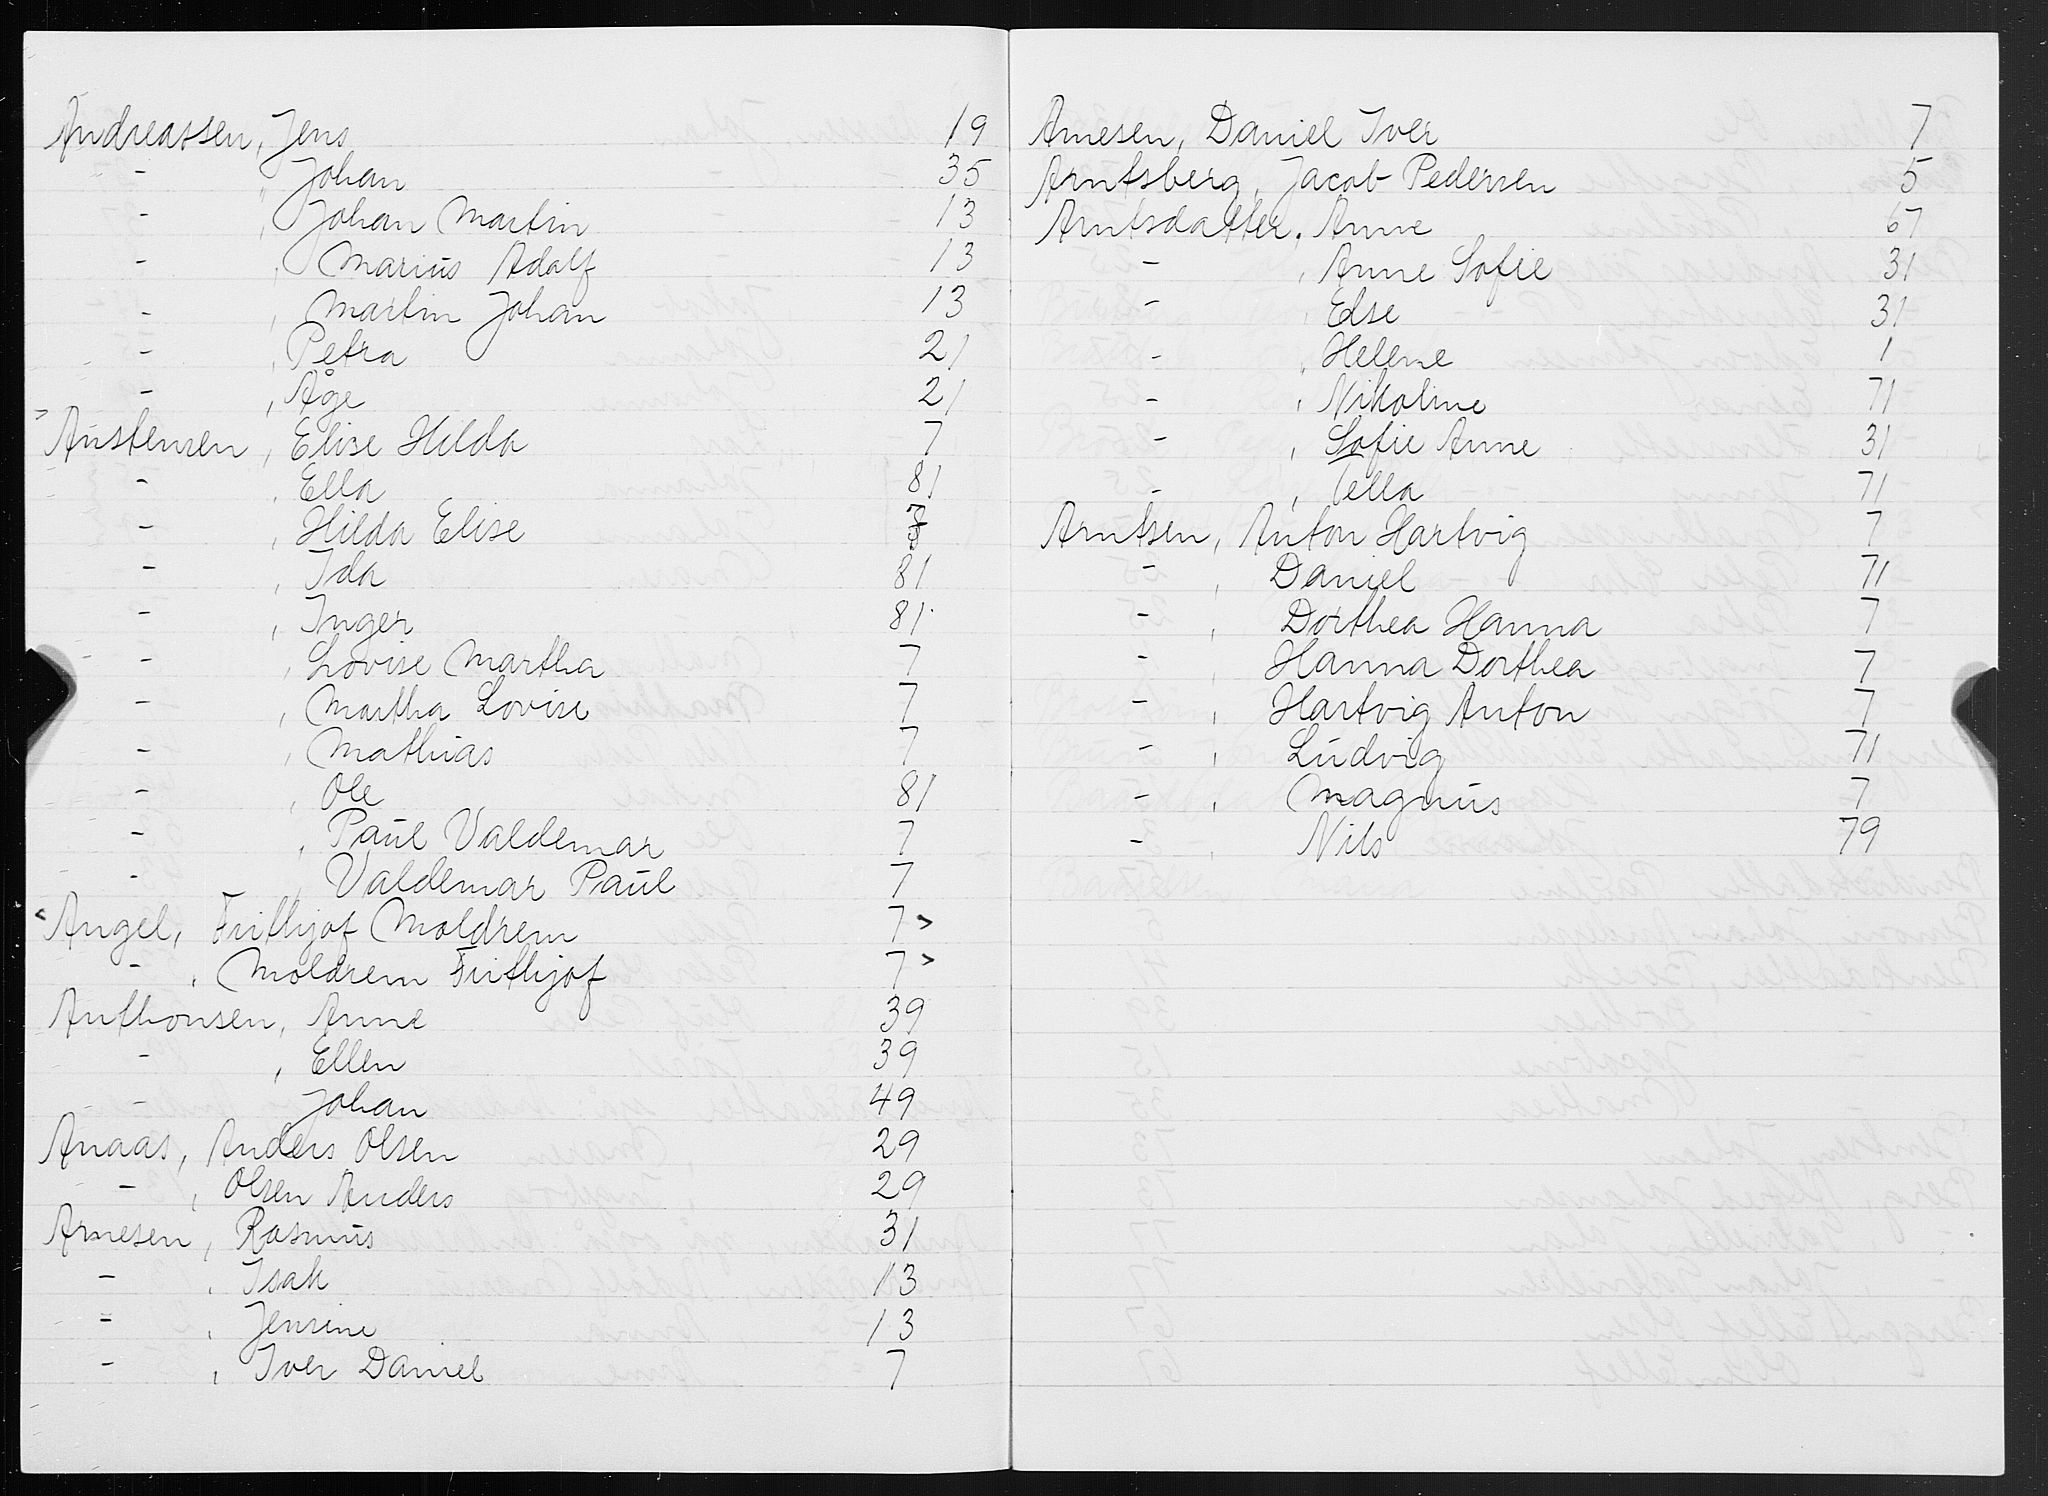 Andreassen, Jens 19
- , Johan 35
- , Johan Martin 13
- , Marius Adolf 13
- , Martin Johan 13
- , Petra 21
- , Åge 21
> Austensen, Elise Hilda 7
- , Ella 81
- , Hilda Elise 7
- , Ida 81
- , Inger 81
- , Lovise Martha 7
- , Martha Lovise 7
- , Mathias 7
- , Ole 81
- , Paul Valdemar 7
- , Valdemar Paul 7
< Angel, Frithjof Moldrem 7 >
- , Moldrem Frithjof 7 >
Anthonsen, Anne 39
- , Ellen 39
- Johan 49
Anaas, Anders Olsen 29
- , Olsen Anders 29
Arnesen, Rasmus 31
- , Isak 13
- , Jensine 13
- , Iver Daniel 7
Arnesen, Daniel Iver 7
Arntsberg, Jacob Pedersen 5
Arntsdatter, Anne 67
- , Anne Sofie 31
- , Else 31
- , Helene 1
- , Nikoline 71
- , Sofie Anne 31
- , Tella 71
Arntsen, Anton Hartvig 7
- , Daniel 71
- , Dorthea Hanna 7
- , Hanna Dorthea 7
- , Hartvig Anton 7
- , Ludvig 71
- , Magnus 7
- , Nils 79